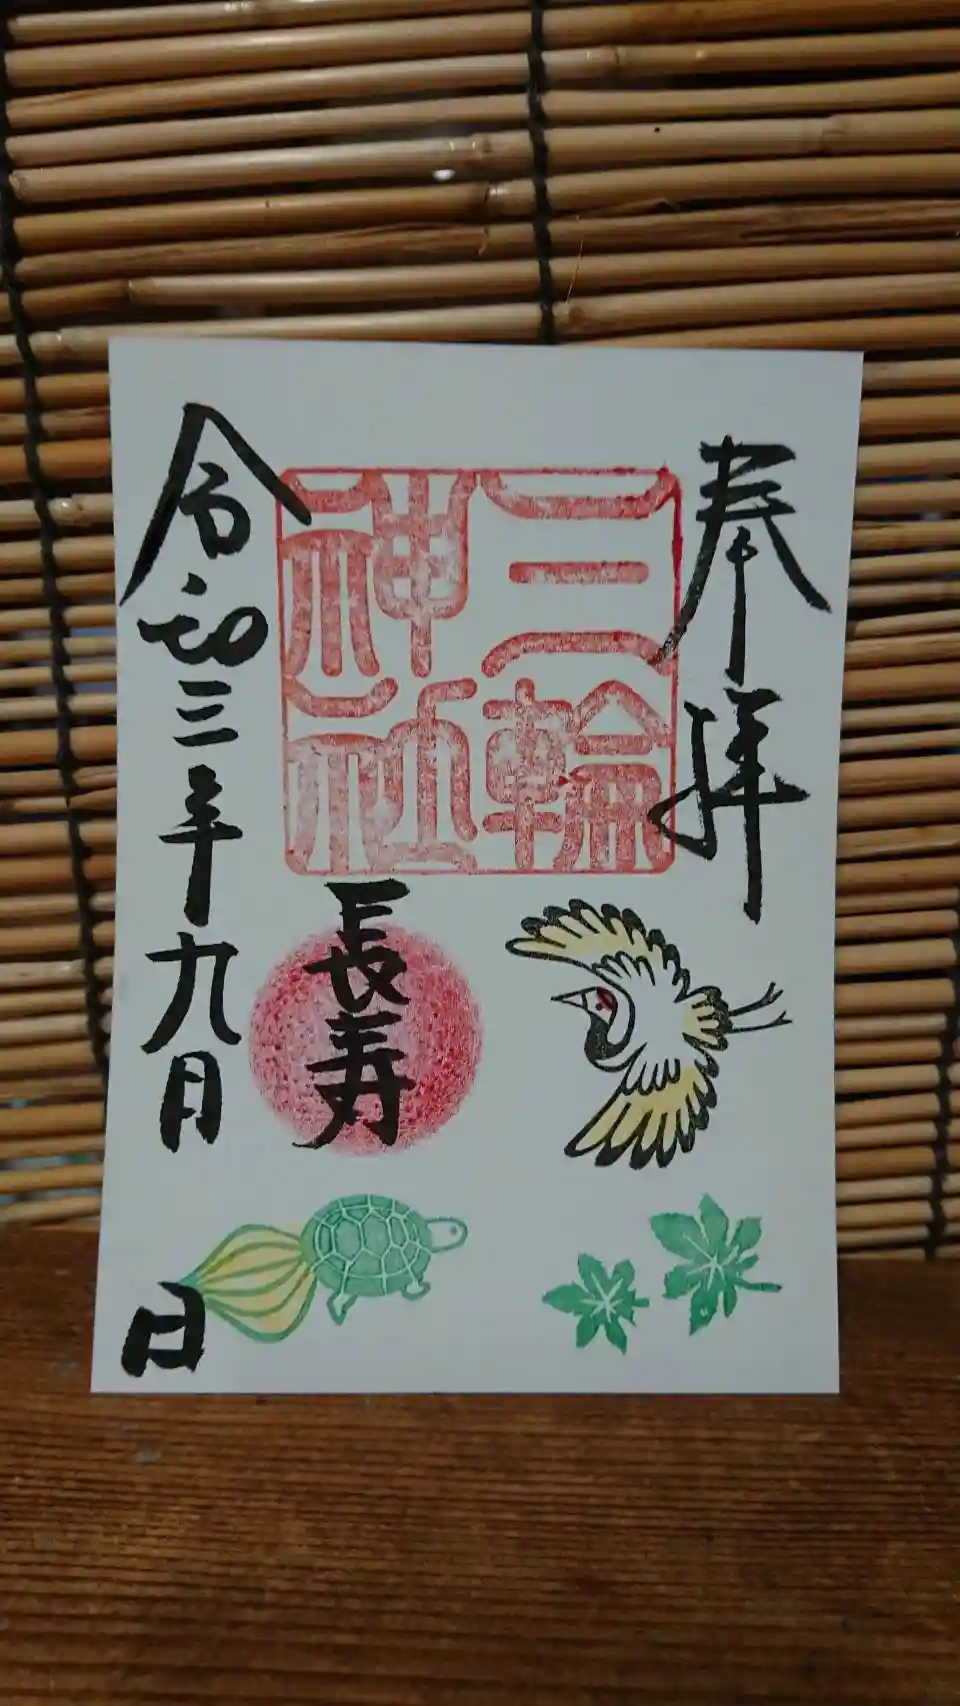 奉拝
三輪
神社
長寿
令和三年九月 日